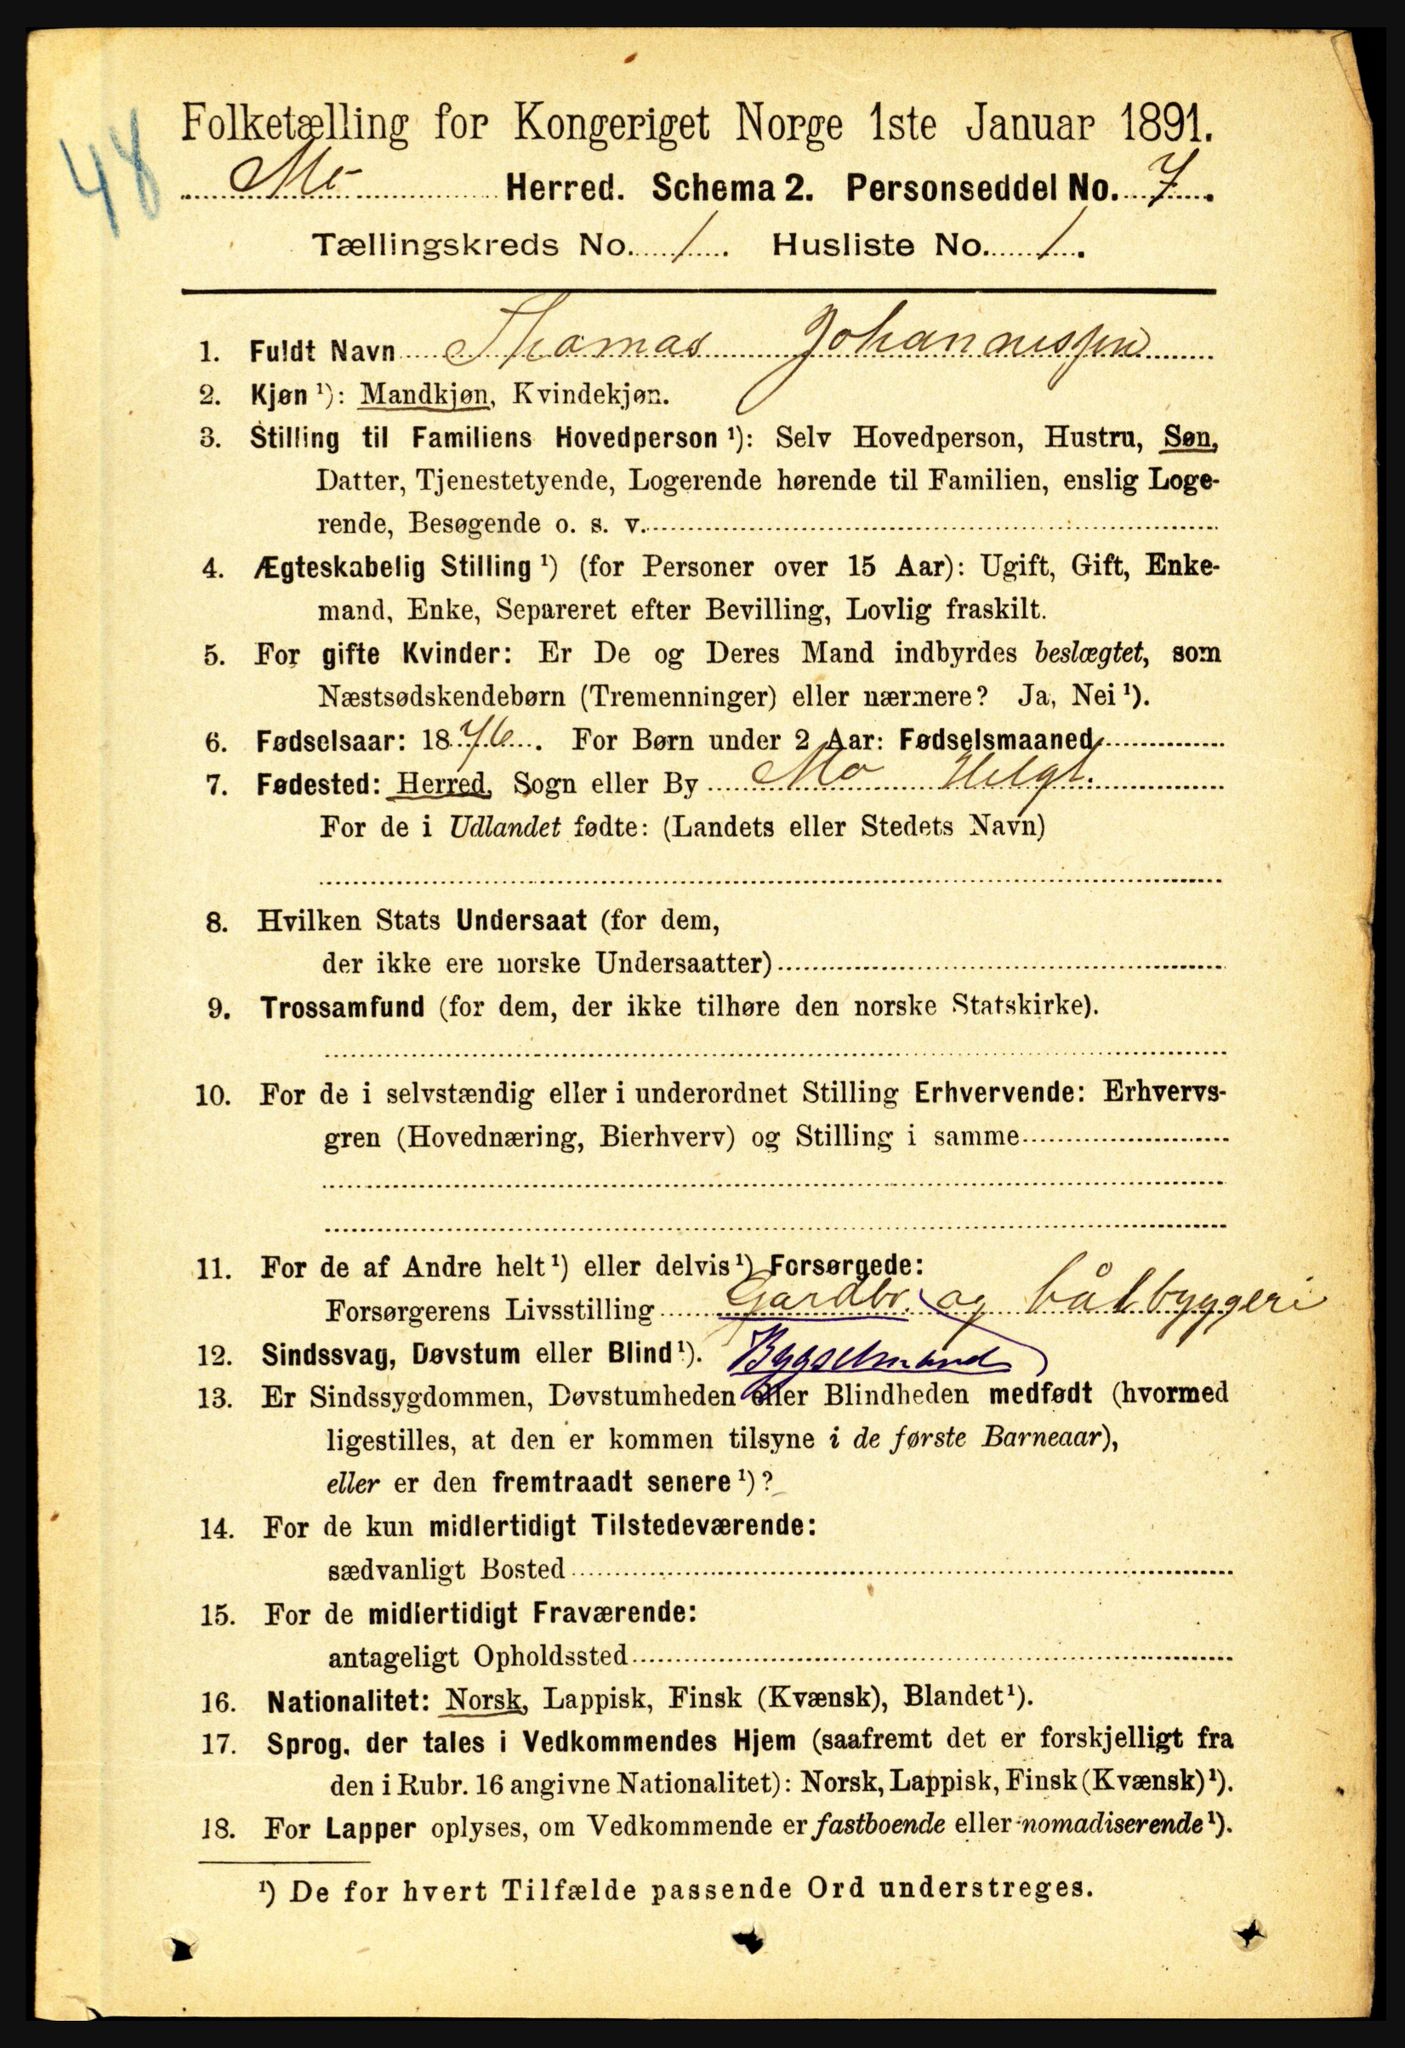 48
Folketælling for Kongeriget Norge 1ste Januar 1891.
Mo Herred. Schema 2. Personseddel No. 7.
Tællingskreds No. 1. Husliste No. 1.
1. Fuldt Navn Thomas Johannessen
2. Kjøn ¹): Mandkjøn, Kvindekjøn.
3. Stilling til Familiens Hovedperson ¹): Selv Hovedperson, Hustru, Søn,
Datter, Tjenestetyende, Logerende hørende til Familien, enslig Loge-
rende, Besøgende o. s. v.
4. Ægteskabelig Stilling ¹) (for Personer over 15 Aar): Ugift, Gift, Enke-
mand, Enke, Separeret efter Bevilling, Lovlig fraskilt.
5. For gifte Kvinder: Er De og Deres Mand indbyrdes beslægtet, som
Næstsødskendebørn (Tremenninger) eller nærmere? Ja, Nei ¹).
6. Fødselsaar: 1876. For Børn under 2 Aar: Fødselsmaaned
7. Fødested: Herred, Sogn eller By Mo Helgl.
For de i Udlandet fødte: (Landets eller Stedets Navn)
8. Hvilken Stats Undersaat (for dem,
der ikke ere norske Undersaatter)
9. Trossamfund (for dem, der ikke tilhøre den norske Statskirke).
10. For de i selvstændig eller i underordnet Stilling Erhvervende: Erhvervs-
gren (Hovednæring, Bierhverv) og Stilling i samme
11. For de af Andre helt ¹) eller delvis ¹) Forsørgede:
Forsørgerens Livsstilling Gardbr. og båtbyggeri
12. Sindssvag, Døvstum eller Blind ¹). Bygselmand
13. Er Sindssygdommen, Døvstumheden eller Blindheden medfødt (hvormed
ligestilles, at den er kommen tilsyne i de første Barneaar),
eller er den fremtraadt senere ¹)?
14. For de kun midlertidigt Tilstedeværende:
sædvanligt Bosted
15. For de midlertidigt Fraværende:
antageligt Opholdssted
16. Nationalitet: Norsk, Lappisk, Finsk (Kvænsk), Blandet ¹).
17. Sprog, der tales i Vedkommendes Hjem (saafremt det er forskjelligt fra
den i Rubr. 16 angivne Nationalitet): Norsk, Lappisk, Finsk (Kvænsk) ¹).
18. For Lapper oplyses, om Vedkommende er fastboende eller nomadiserende ¹).
¹) De for hvert Tilfælde passende Ord understreges.